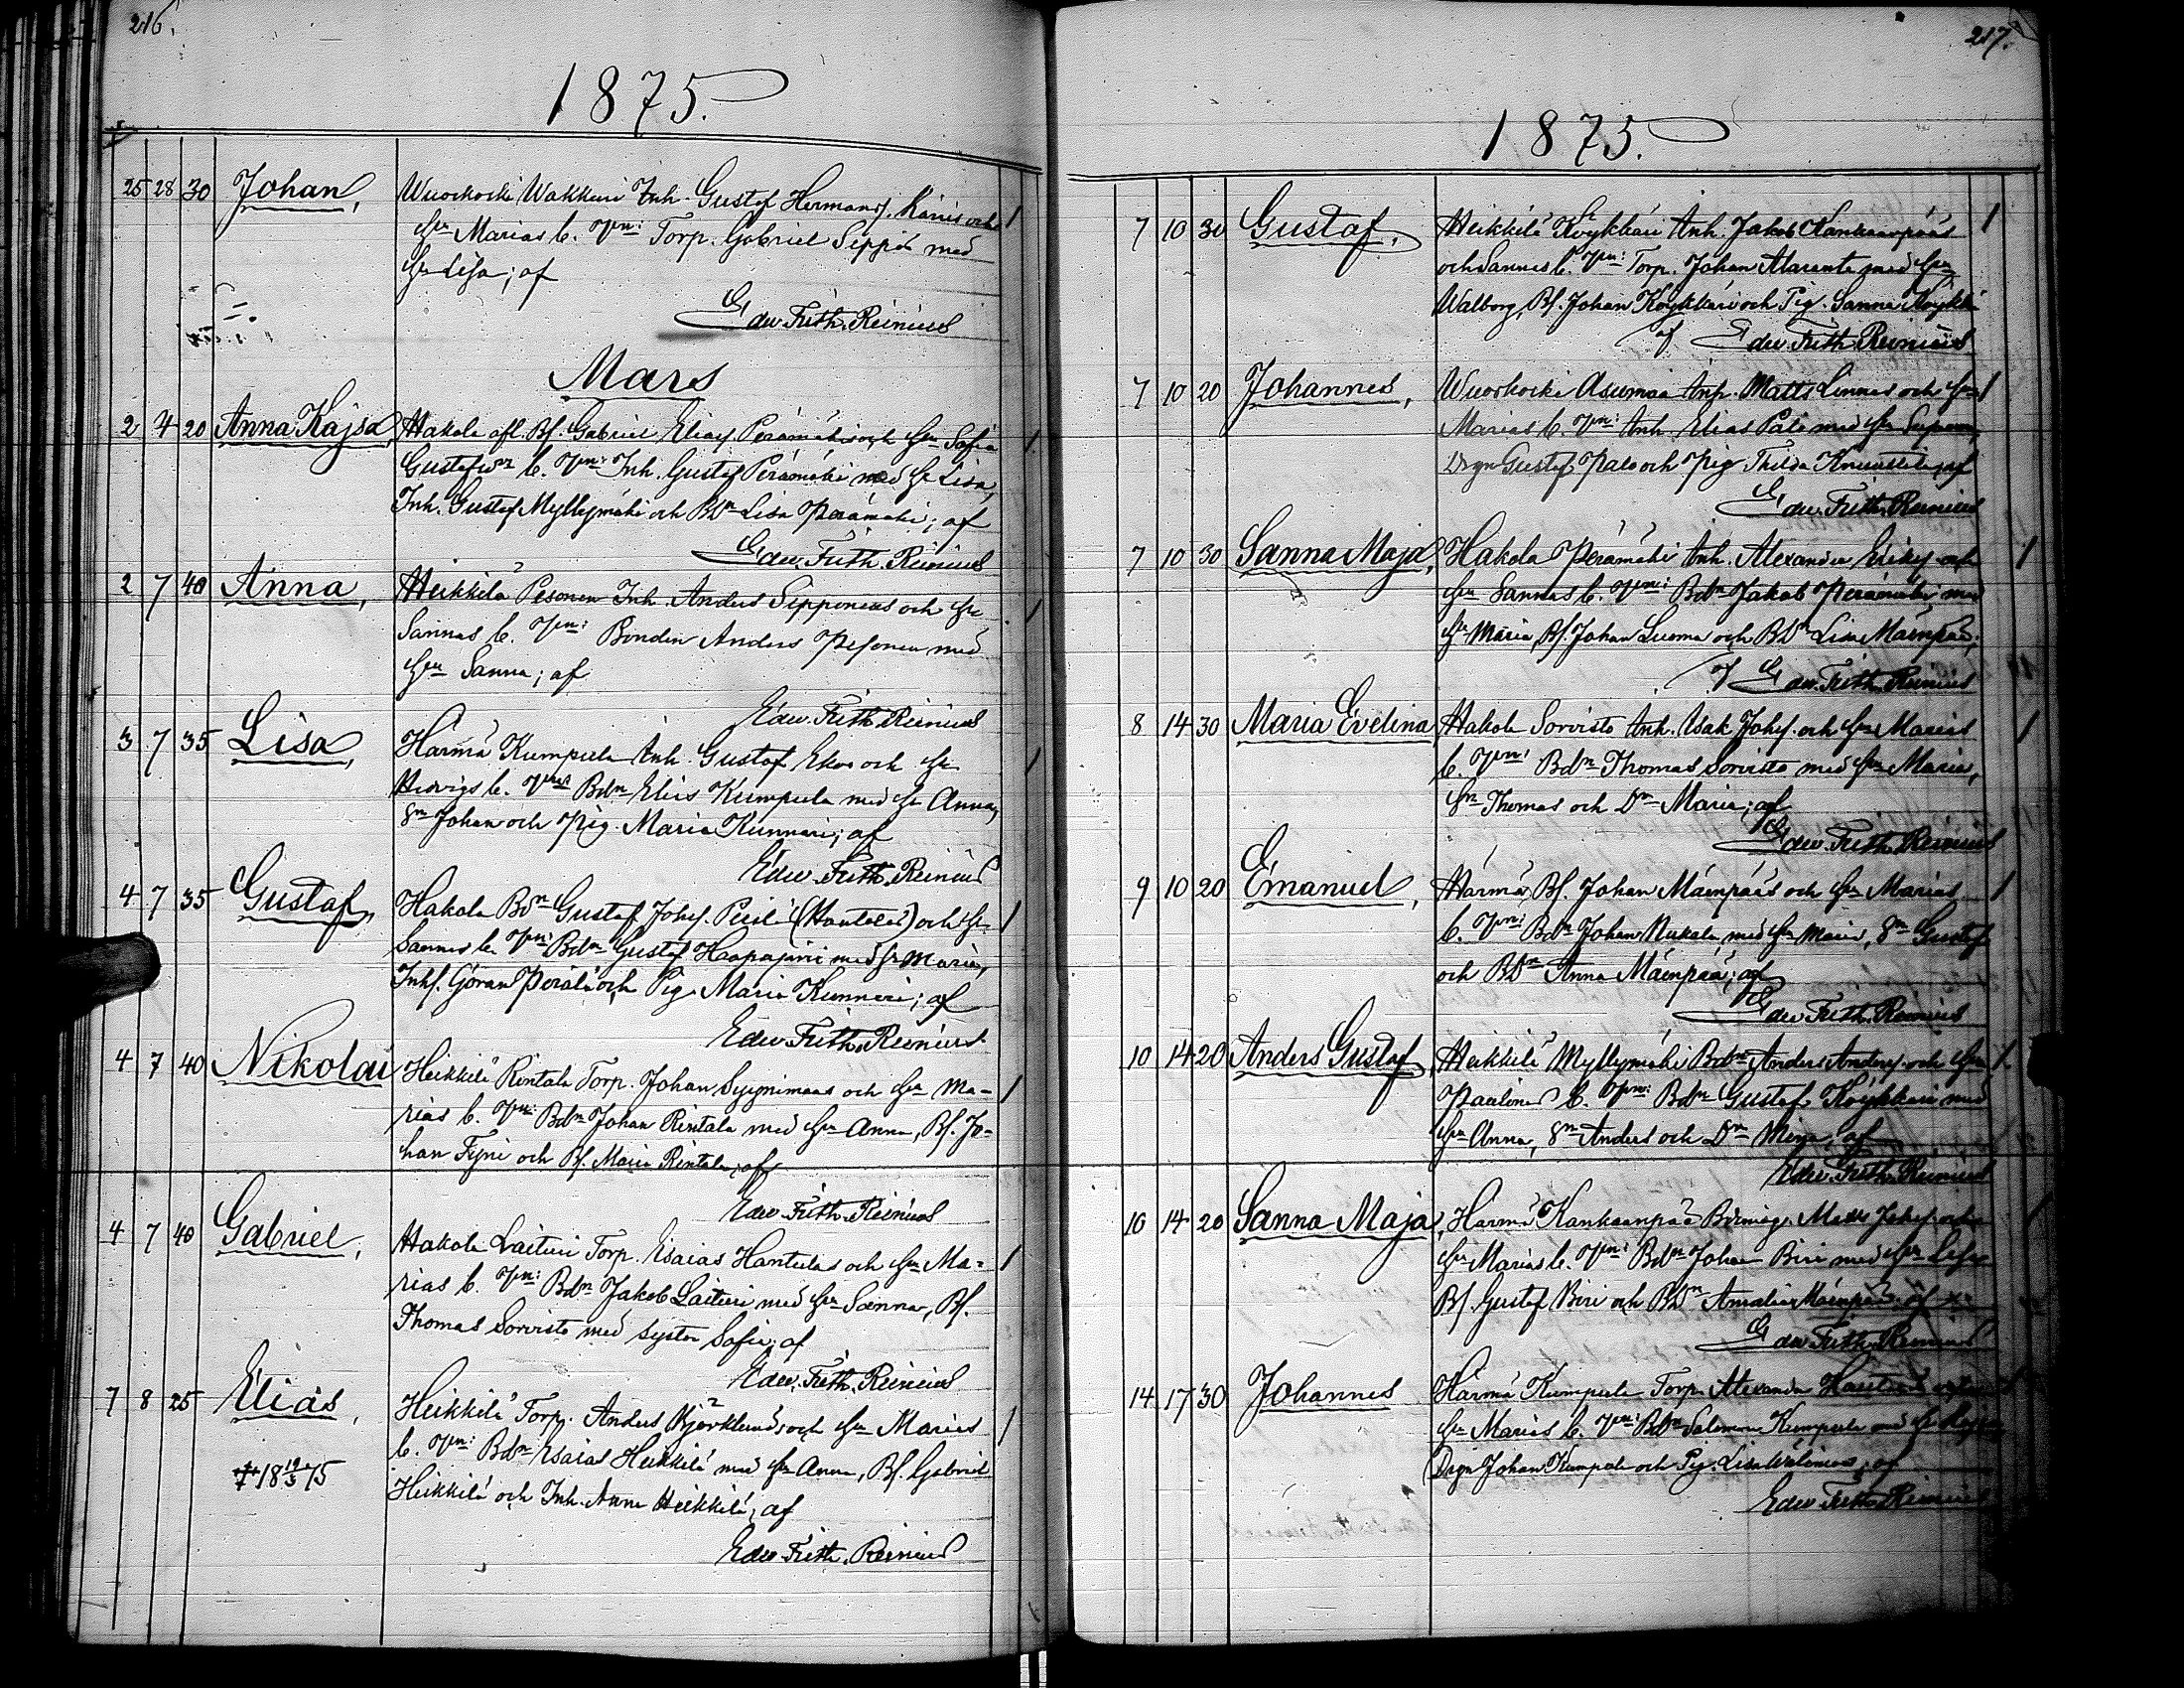 216.
1875.
25 28 30 Johan, Wuoskoski Wakkuri Inh. Gustaf Hermans. och
Hu Marias b. Vn: Torp. Gabriel Seppä med
Hu Lisa; af
Edw. Frith. Reinius
Mars
2 4 20 Anna Kajsa, Hakola afl. Bs. Gabriel Elias Perämäki och Hu Sofia
Gustafsdr b. Vn: Inh. Gustaf Perämäki med Hu Lisa,
Inh. Gustaf Myllymäki och Bdr Lisa Perämäki; af
Edw. Frith. Reinius
2 7 40 Anna, Heikkilä Pesonen Inh. Anders Sepponens och Hu
Sannas b. Vn: Bonden Anders Pesonen med
Hu Sanna; af
Edw. Frith. Reinius
3 7 35 Lisa, Härmä Kumpula Inh. Gustaf Ekos och Hu
Hedvigs b. Vn: Bdn Elias Kumpula med Hu Anna,
Sn Johan och Pig. Maria Kunnari; af
Edw. Frith. Reinius
4 7 35 Gustaf, Hakola Bdn Gustaf Johs. (Hantulas) och Hu
Sannas b. Vn: Bdn Gustaf Haapajärvi med Hu Maria,
Inhs. Göran Perälä och Pig. Maria Kunnari; af
Edw. Frith. Reinius
4 7 40 Nikolai Heikkilä Rintala Torp. Johan Syynimaas och Hu Ma-
rias b. Vn: Bdn Johan Rintala med Hu Anna, Bs. Jo-
han Fyri och Bs. Maria Rintala; af
Edw. Frith. Reinius
4 7 40 Gabriel, Hakola Laituri Torp. Esaias Hantulas och Hu Ma-
rias b. Vn: Bdn Jakob Laituri med Hu Sanna, Bs.
Thomas Sorvisto med syster Sofia; af
Edw. Frith. Reinius
7 8 25 Elias, Heikkilä Torp. Anders Björklunds och Hu Marias
b. Vn: Bdn Esaias Heikkilä med Hu Anna, Bs. Gabriel
† 18 12/3 75 Heikkilä och Inh. Anna Heikkilä; af
Edw. Frith. Reinius
217.
1875.
7 10 30 Gustaf, Heikkilä Köykkäri Inh. Jakob Kankaanpääs
och Sannas b. Vn: Torp. Johan Alaranta med Hu
Walborg, Bs. Johan Köykkäri och Pig. Sanna Köykkä
af Edw. Frith. Reinius
7 10 20 Johannes, Wuoskoski Asumaa Inh. Matts Linnas och Hu
Marias b. Vn: Inh. Elias Palo med Hu Susanna,
Drgn Gustaf Palo och Pig Thilda Knuuttila; af
Edw. Frith. Reinius
7 10 30 Sanna Maja, Hakola Perämäki Inh. Alexander Eriks. och
Hu Sannas b. Vn: Bdn Jakob Perämäki med
Hu Maria, Bs. Johan Luoma och Bdr Lisa Mäenpää;
af Edw. Frith. Reinius
8 14 30 Maria Evelina Hakola Sorvisto Inh. Isak Johs. och Hu Marias
b. Vn: Bdn Thomas Sorvisto med Hu Maria,
Sn Thomas och Dr Maria; af
Edw. Frith. Reinius
9 10 20 Emanuel, Härmä, Bs. Johan Mäenpääs och Hu Marias
b. Vn: Bdn Johan Nukala med Hu Maria, Sn Gustaf
och Bdr Anna Mäenpää; af
Edw. Frith. Reinius
10 14 20 Anders Gustaf, Heikkilä Myllymäki Bdn Anders Anders. och Hu
Paulinas b. Vn: Bdn Gustaf Köykkäri med
Hu Anna, Sn Anders och Dr Mina; af
Edw. Frith. Reinius
10 14 20 Sanna Maja, Härmä Kankaanpää Bdmåg. Matts Johs. och
Hu Marias b. Vn: Bdn Johan Biri med Hu Lisa
Bs Gustaf Biri och Bdr Amalia Mäenpää; af
Edw. Frith. Reinius
14 17 30 Johannes Härmä Kumpula Torp. Alexander och
Hu Marias b. Vn: Bdn Salomon Kumpula med Hu Kajsa,
Drgn Johan Kumpula och Pig. Lisa; af
Edw. Frith. Reinius